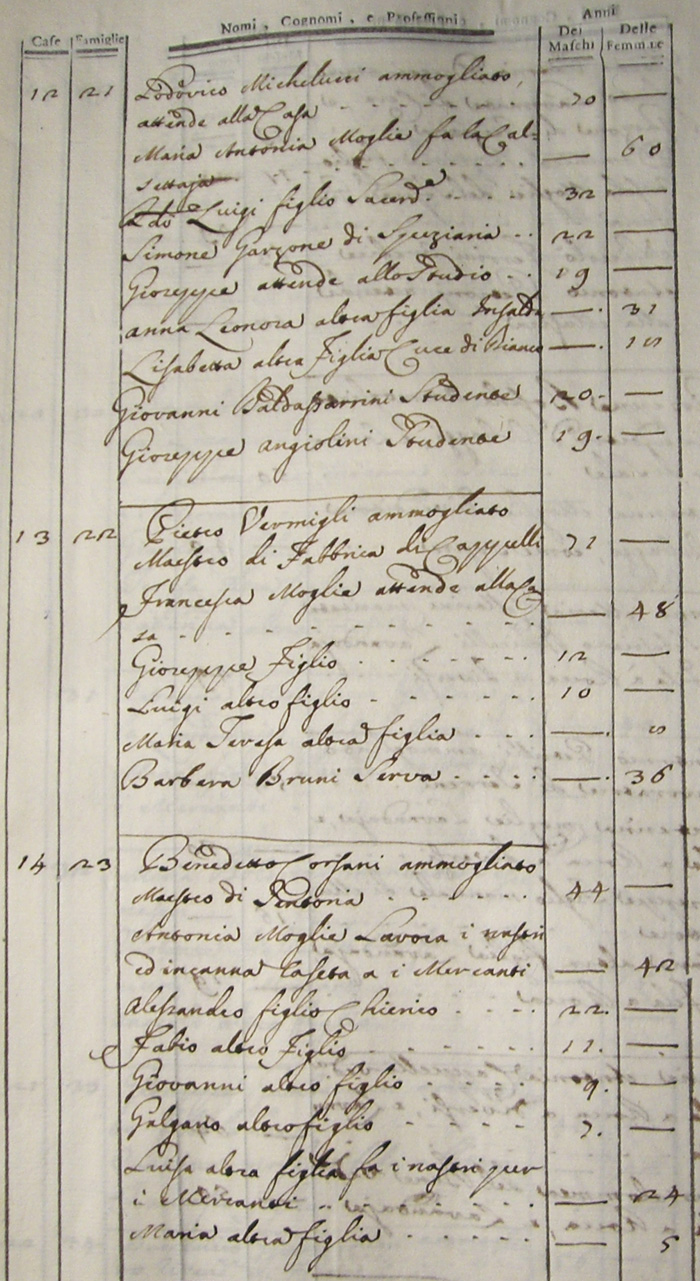 Nomi, Cognomi, e Professioni
Anni
Case Famiglie Dei Maschi Delle Femmine
12 21 Lodovico Michelucci ammogliato,
attende alla Casa 70 —
Maria Antonia Moglie fa la Cal=
settaja — 60
Luigi figlio Sacerd.e 32 —
Simone Garzone di Speziaria 22 —
Gioseppe attende allo Studio 19 —
anna Leonora altra figlia — 31
Lisabetta altra Figlia Cuce di Bianco —
Giovanni Baldassarrini Studente 20 —
Gioseppe angiolini Studente 19 —
13 22 Pietro Vermigli ammogliato
Maestro di Fabbrica di Cappelli 71 —
Francesca Moglie attende alla Ca
sa — 48
Gioseppe Figlio 12 —
Luigi altro figlio 10 —
Maria Teresa altra figlia —
Barbera Bruni Serva — 36
14 23 Benedetto Corsani ammogliato
Maestro di Tentoria 44 —
Antonia Moglie Lavora i nastri
ed incanna la seta a i Mercanti — 42
Alessandro figlio Chierico 22 —
Fabio altro Figlio 11 —
Giovanni altro figlio 9 —
Galgano altro figlio 7 —
Luisa altra figlia fa i nastri per
i Mercanti — 24
Maria altra figlia — 5